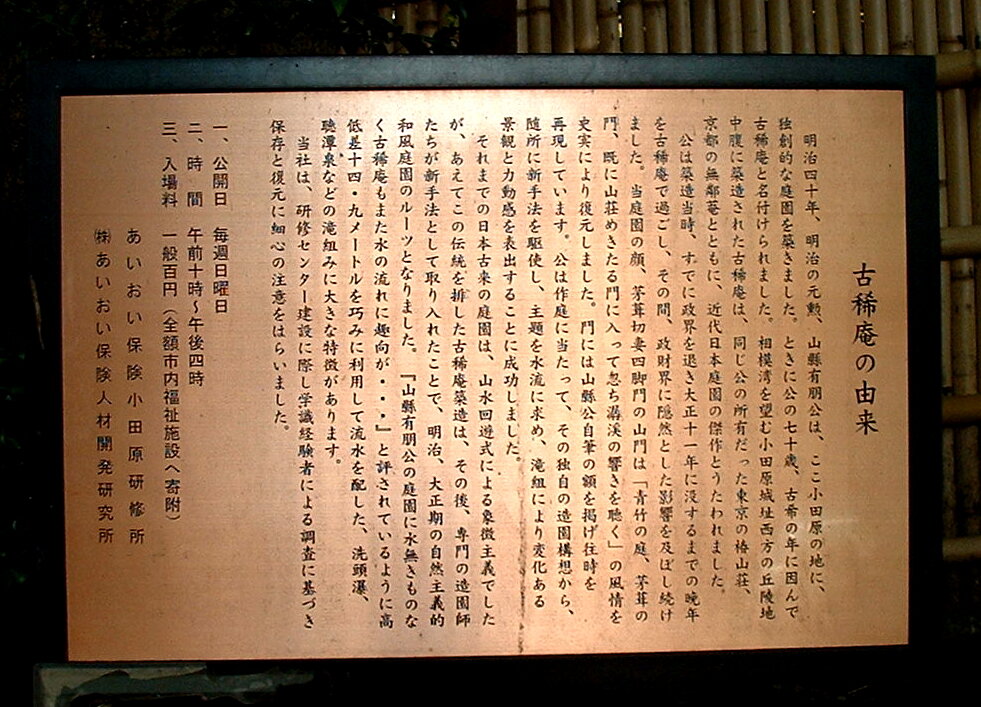 古稀庵の由来
明治四十年、明治の元勲、山縣有朋公は、ここ小田原の地に、
独創的な庭園を築きました。ときに公の七十歳、古希の年に因んで
古稀庵と名付けられました。相模湾を望む小田原城址西方の丘陵地
中腹に築造された古稀庵は、同じ公の所有だった東京の椿山荘、
京都の無鄰菴とともに、近代日本庭園の傑作とうたわれました。
公は築造当時、すでに政界を退き大正十一年に没するまでの晩年
を古稀庵で過ごし、その間、政財界に隠然とした影響を及ぼし続け
ました。当庭園の顔、茅葺切妻四脚門の山門は「青竹の庭、茅葺の
門、既に山荘めきたる門に入って忽ち潺渓の響きを聴く」の風情を
史実により復元しました。門には山縣公自筆の額を掲げ往時を
再現しています。公は作庭に当たって、その独自の造園構想から、
随所に新手法を駆使し、主題を水流に求め、滝組により変化ある
景観と力動感を表出することに成功しました。
それまでの日本古来の庭園は、山水回遊式による象徴主義でした
が、あえてこの伝統を排した古稀庵築造は、その後、専門の造園師
たちが新手法として取り入れたことで、明治、大正期の自然主義的
和風庭園のルーツとなりました。『山縣有朋公の庭園に水無きものな
く古稀庵もまた水の流れに趣向が・・・』と評されているように高
低差十四・九メートルを巧みに利用して流水を配した、洗頭瀑、
聴潭泉などの滝組みに大きな特徴があります。
当社は、研修センター建設に際し学識経験者による調査に基づき
保存と復元に細心の注意をはらいました。
一、公開日 毎週日曜日
二、時間 午前十時～午後四時
三、入場料 一般百円（全額市内福祉施設へ寄附）
あいおい保険小田原研修所
㈱あいおい保険人材開発研究所